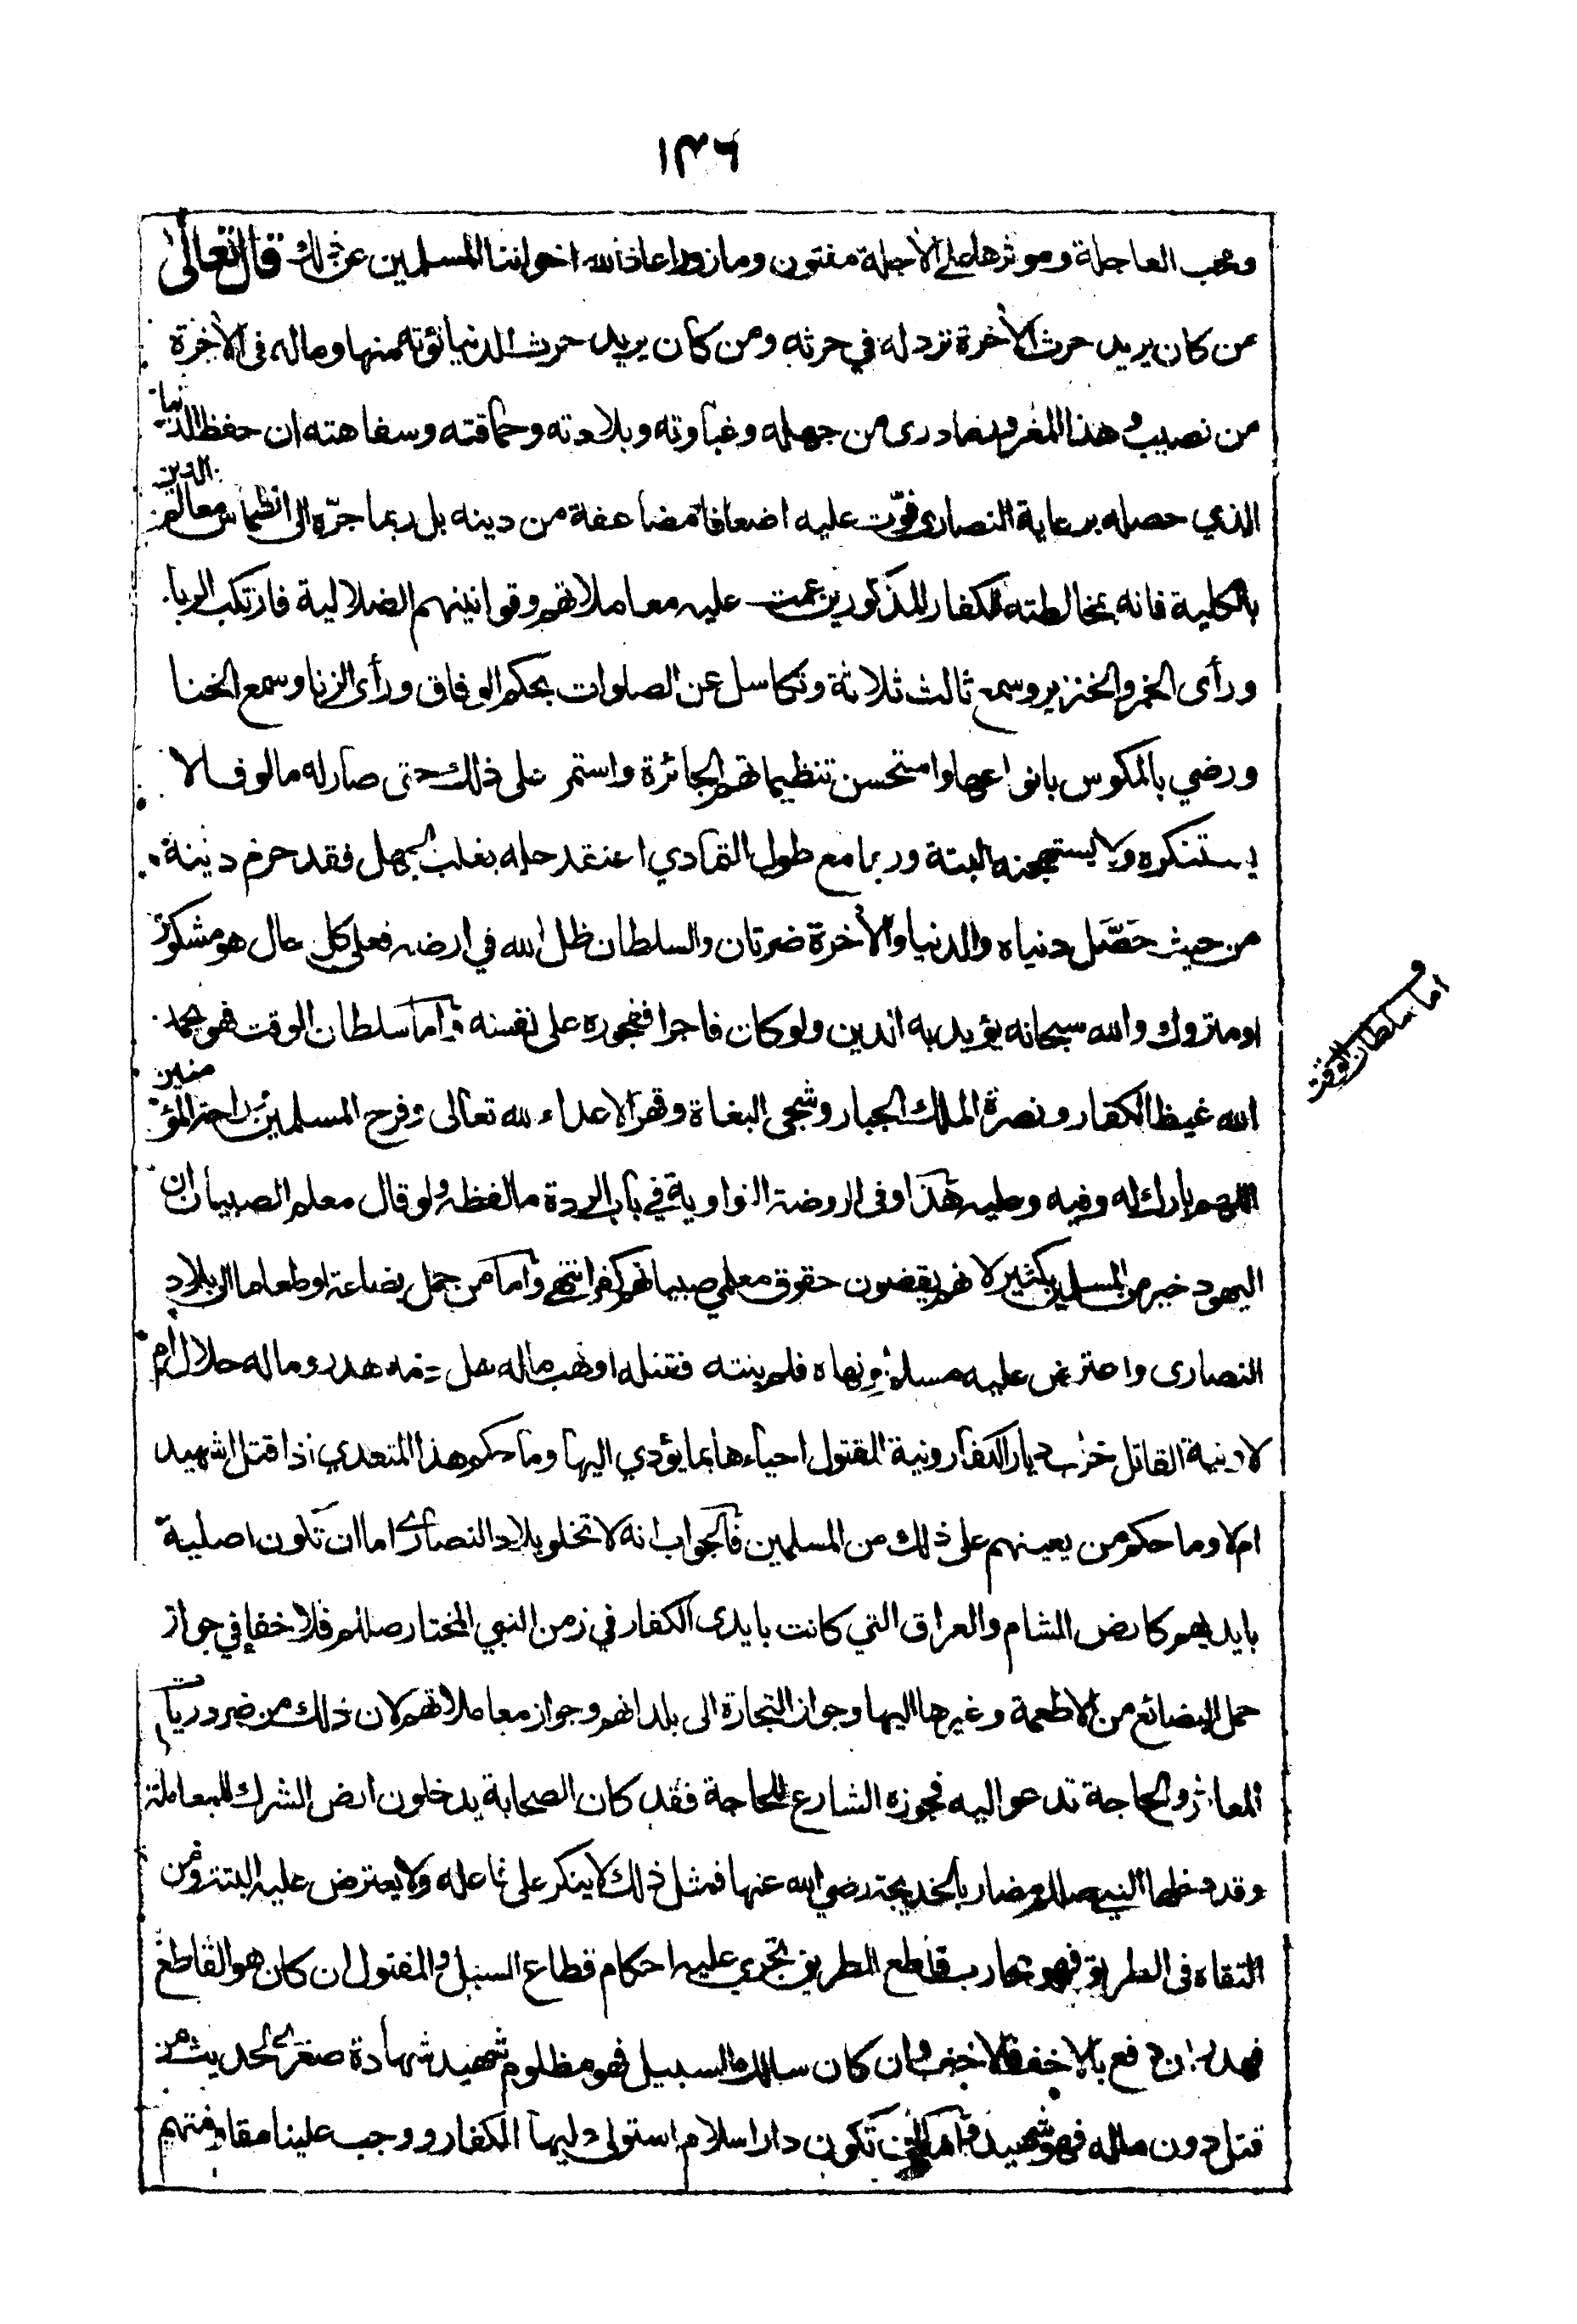 ١٣٦
ومحب العاجلة وموثرها على الآجلة مفتون ومازور اعاذ الله اخواننا المسلمين عن ذلك قال تعالى
من كان يريد حرث الآخرة نزد له في حرثه ومن كان يريد حرث الدنيا نؤته منها وماله فى الآخرة
من نصيب وهذا المغرور ما درى من جهله وغباوته وبلادته وحماقته وسفاهته ان حفظ الدنيا
الذي حصله برعاية النصارى فوّت عليه اضعافا مضاعفة من دينه بل ربما جرّه الى انطماس معالم الدين
بالكلية فانه بمخالطته الكفار المذكورين عمت عليه معاملاتهم وقوانينهم الضلالية فارتكب الربا
ورأى الخمر والخنزير وسمع ثالث ثلاثة وتكاسل عن الصلوات بحكم الوفاق ورأى الزنا وسمع الخنا
ورضي بالمكوس بانواعها واستحسن تنظيماتهم الجائرة واستمر على ذلك حتى صار له مالوفا لا
يستنكره ولا يستهجنه البتة وربما مع طول التمادي اعتقد حله بغلب الجهل فقد حرم دينه
من حيث حَصَّل دنياه والدنيا والآخرة ضرتان والسلطان ظل الله في ارضه فعلى كل حال هو مشكور
او متروك والله سبحانه يؤيد به الدين ولو كان فاجرا ففجوره على نفسه وأما سلطان الوقت فهو بحمد
اما سلطان الوقت
الله غيظ الكفار ونصرة الملك الجبار وشجى البغاة وقهر الاعداء لله تعالى وفرح المسلمين راحة المؤمنين
اللهم بارك له وفيه وعليه هذا وفى الروضة النواوية في باب الردة ما لفظه ولو قال معلم الصبيان ان
اليهود خير من المسلمين بكثير لانهم يقضون حقوق معلمي صبيانهم كفر انتهى وأما من حمل بضاعة او طعاما الى بلاد
النصارى واعترض عليه مسلم ونهاه فلم ينته فقتله او نهب ماله هل دمه هدر وماله حلال ام
لا ونية القاتل خراب ديار الكفار ونية المقتول احياءها بما يؤدي اليها وما حكم هذا المتعدي اذا قتل اشهيد
ام لا وما حكم من يعينهم على ذلك من المسلمين فالجواب انه لا تخلو بلاد النصارى اما ان تكون اصلية
بايديهم كارض الشام والعراق التي كانت بايدى الكفار في زمن النبي المختار صلعم فلا خفا في جواز
حمل البضائع من الاطعمة وغيرها اليها وجواز التجارة الى بلدانهم وجواز معاملاتهم لان ذلك من ضروريات
المعاش والحاجة تدعو اليه فجوزه الشارع للحاجة فقد كان الصحابة يدخلون ارض الشرك للمعاملة
وقد دخلها النبي صلعم مضاربا لخديجة رضي الله عنها فمثل ذلك لا ينكر على فاعله ولا يعترض عليه البتة ومن
التقاه فى الطريق فهو محارب قاطع الطريق تجري عليه احكام قطاع السبل والمقتول ان كان هو القاطع
فهدر ان دفع بالاخف فالاخف وان كان سالك السبيل فهو مظلوم شهيد شهادة صغرى لحديث من
قتل دون ماله فهو شهيد تكون دار اسلام استولى عليها الكفار ووجب علينا مقاومتهم